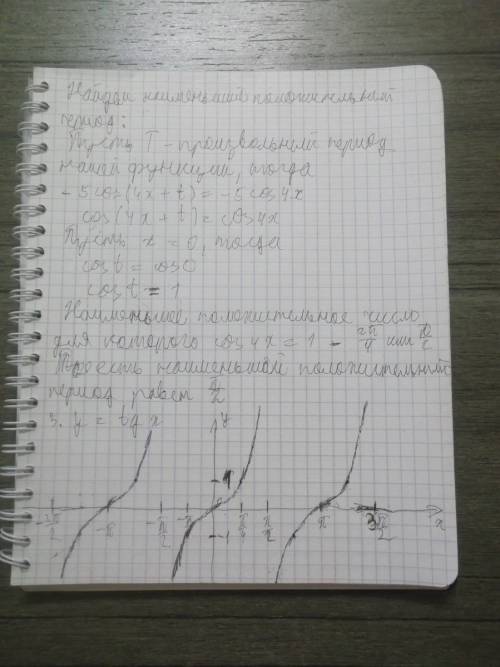 Найдем наименьший положительный
период:
Пусть T - произвольный период
нашей функции, тогда
-5cos(4x+t)=-5cos4x
cos(4x+t)=cos4x
Пусть x=0, тогда
cost=cos0
cost=1
Наименьшее положительное число
для которого cos4x=1 - 2π/4 или π/2
То есть наименьший положительный
период равен π/2
3. y=tgx
y
1
-3π/2 -π -π/2 0 π/2 π 3π/2 x
-1